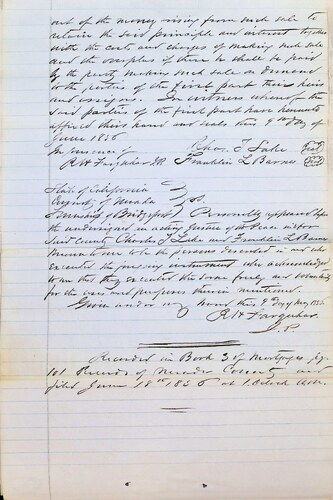 out of the money rising from such sale to
retain the said principle and interest together
with the cost and charges of making such sale
and the overplus if there be shall be paid
by the party making such sale on demand
to the parties of the first part their heirs
and assigns. In witness whereof the
said parties of the first part have hereunto
affixed this hand and seals this 9th day of
June 1856
In presence of Chas. T Lake Seal
R H Farquhar J.P. Franklin L Barnes Seal
State of California
County of Nevada ss.
Township of Bridgeport Personally appeared before
the undersigned an acting Justice of the Peace in & for
Said County Charles T Lake and Franklin L Barnes
Known to me to be the persons described in & who
executed the foregoing instrument who acknowledged
to me that they executed the same freely and voluntarily
for the uses and purposes therein mentioned.
Given under my hand this 9 Day of 1856
R H Farquhar
J.P.
Recorded in Book 3 of Mortgages pg.
101 Records of Nevada County and
filed June 18th 1856 at 1 Oclock